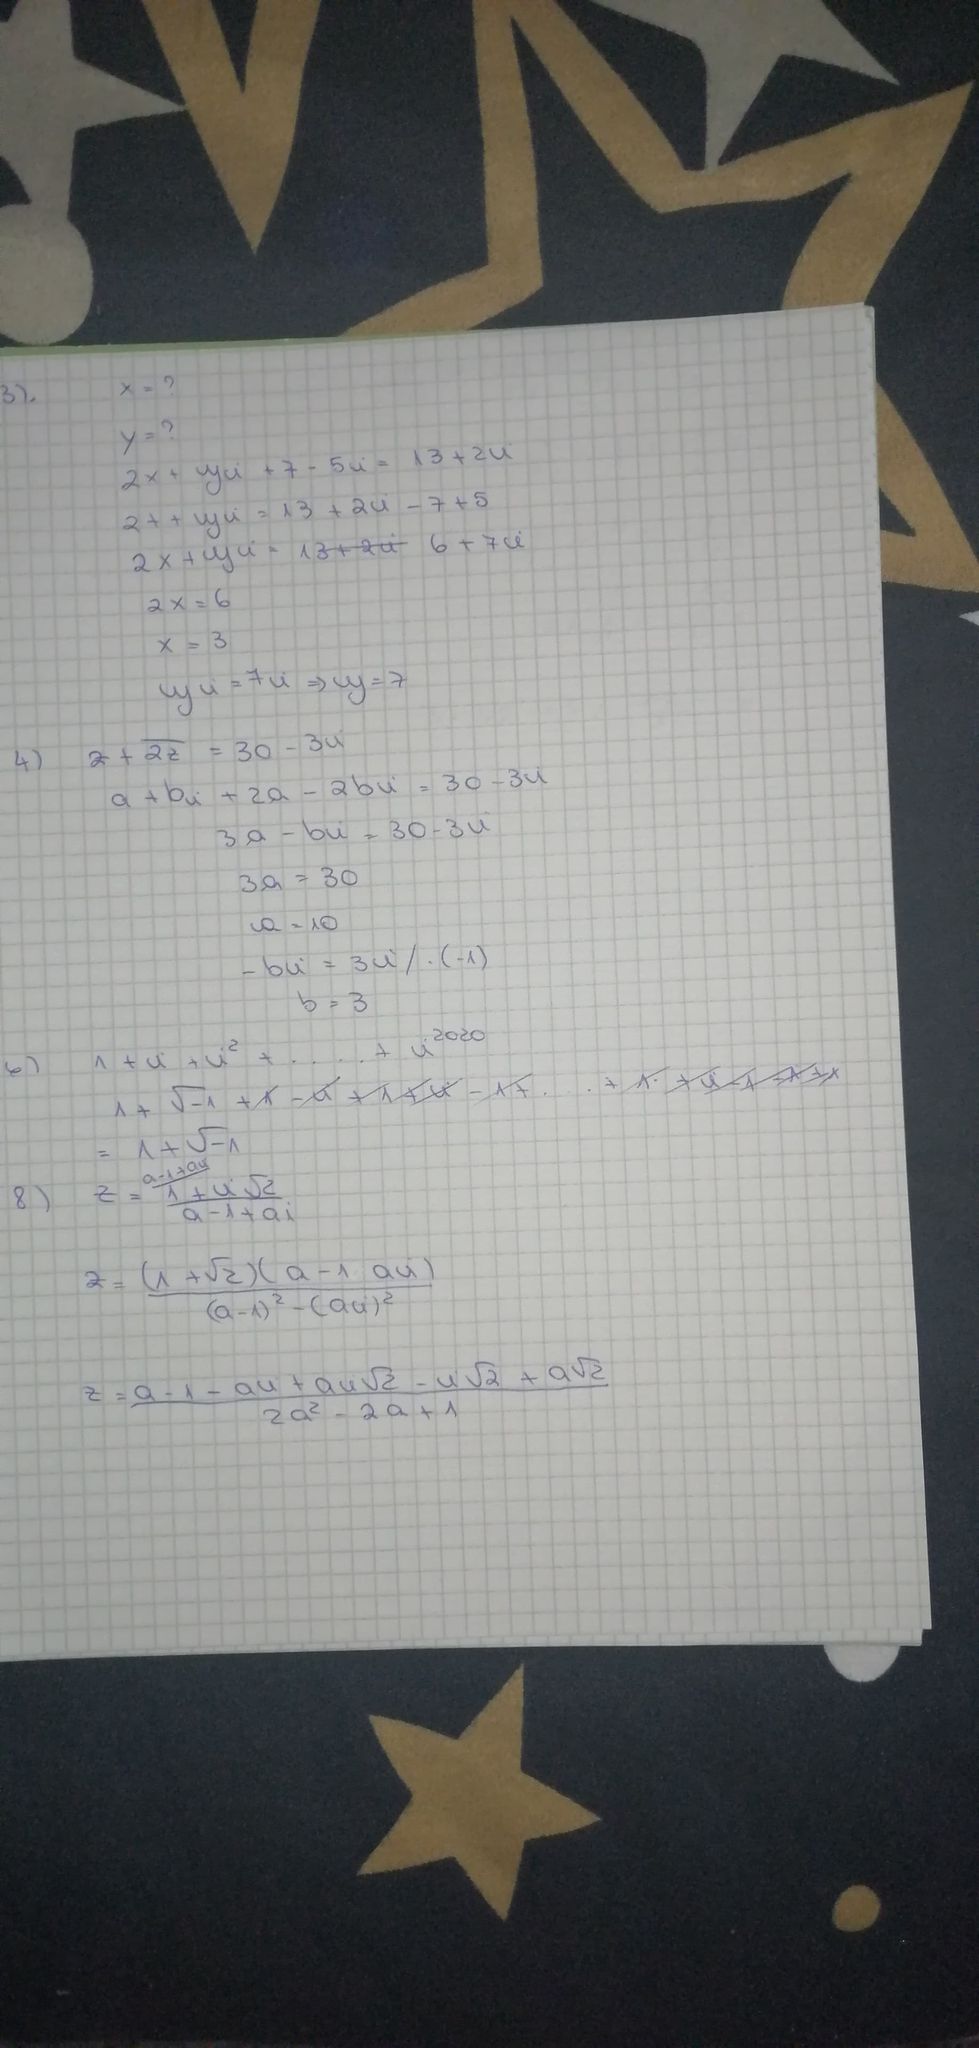 3). x = ?
y = ?
2x + yi + 7 - 5i = 13 + 2i
2x + yi = 13 + 2i - 7 + 5
2x + yi = 13 + 2i 6 + 7i
2x = 6
x = 3
yi = 7i ⇒ y = 7
4) z + \overline{2z} = 30 - 3i
a + bi + 2a - 2bi = 30 - 3i
3a - bi = 30 - 3i
3a = 30
a = 10
-bi = 3i /·(-1)
b = 3
6) 1 + i + i² + ..... + i²⁰²⁰
1 + √-1 + 1 - i + 1 + i - 1 + ... + 1 + i - 1 - 1 + 1
= 1 + √-1
a-1+ai
8) z = (1 + i√2)/(a - 1 + ai)
z = ((1 + √2)(a - 1 ai))/((a-1)² - (ai)²)
z = (a - 1 - ai + ai√2 - i√2 + a√2)/(2a² - 2a + 1)